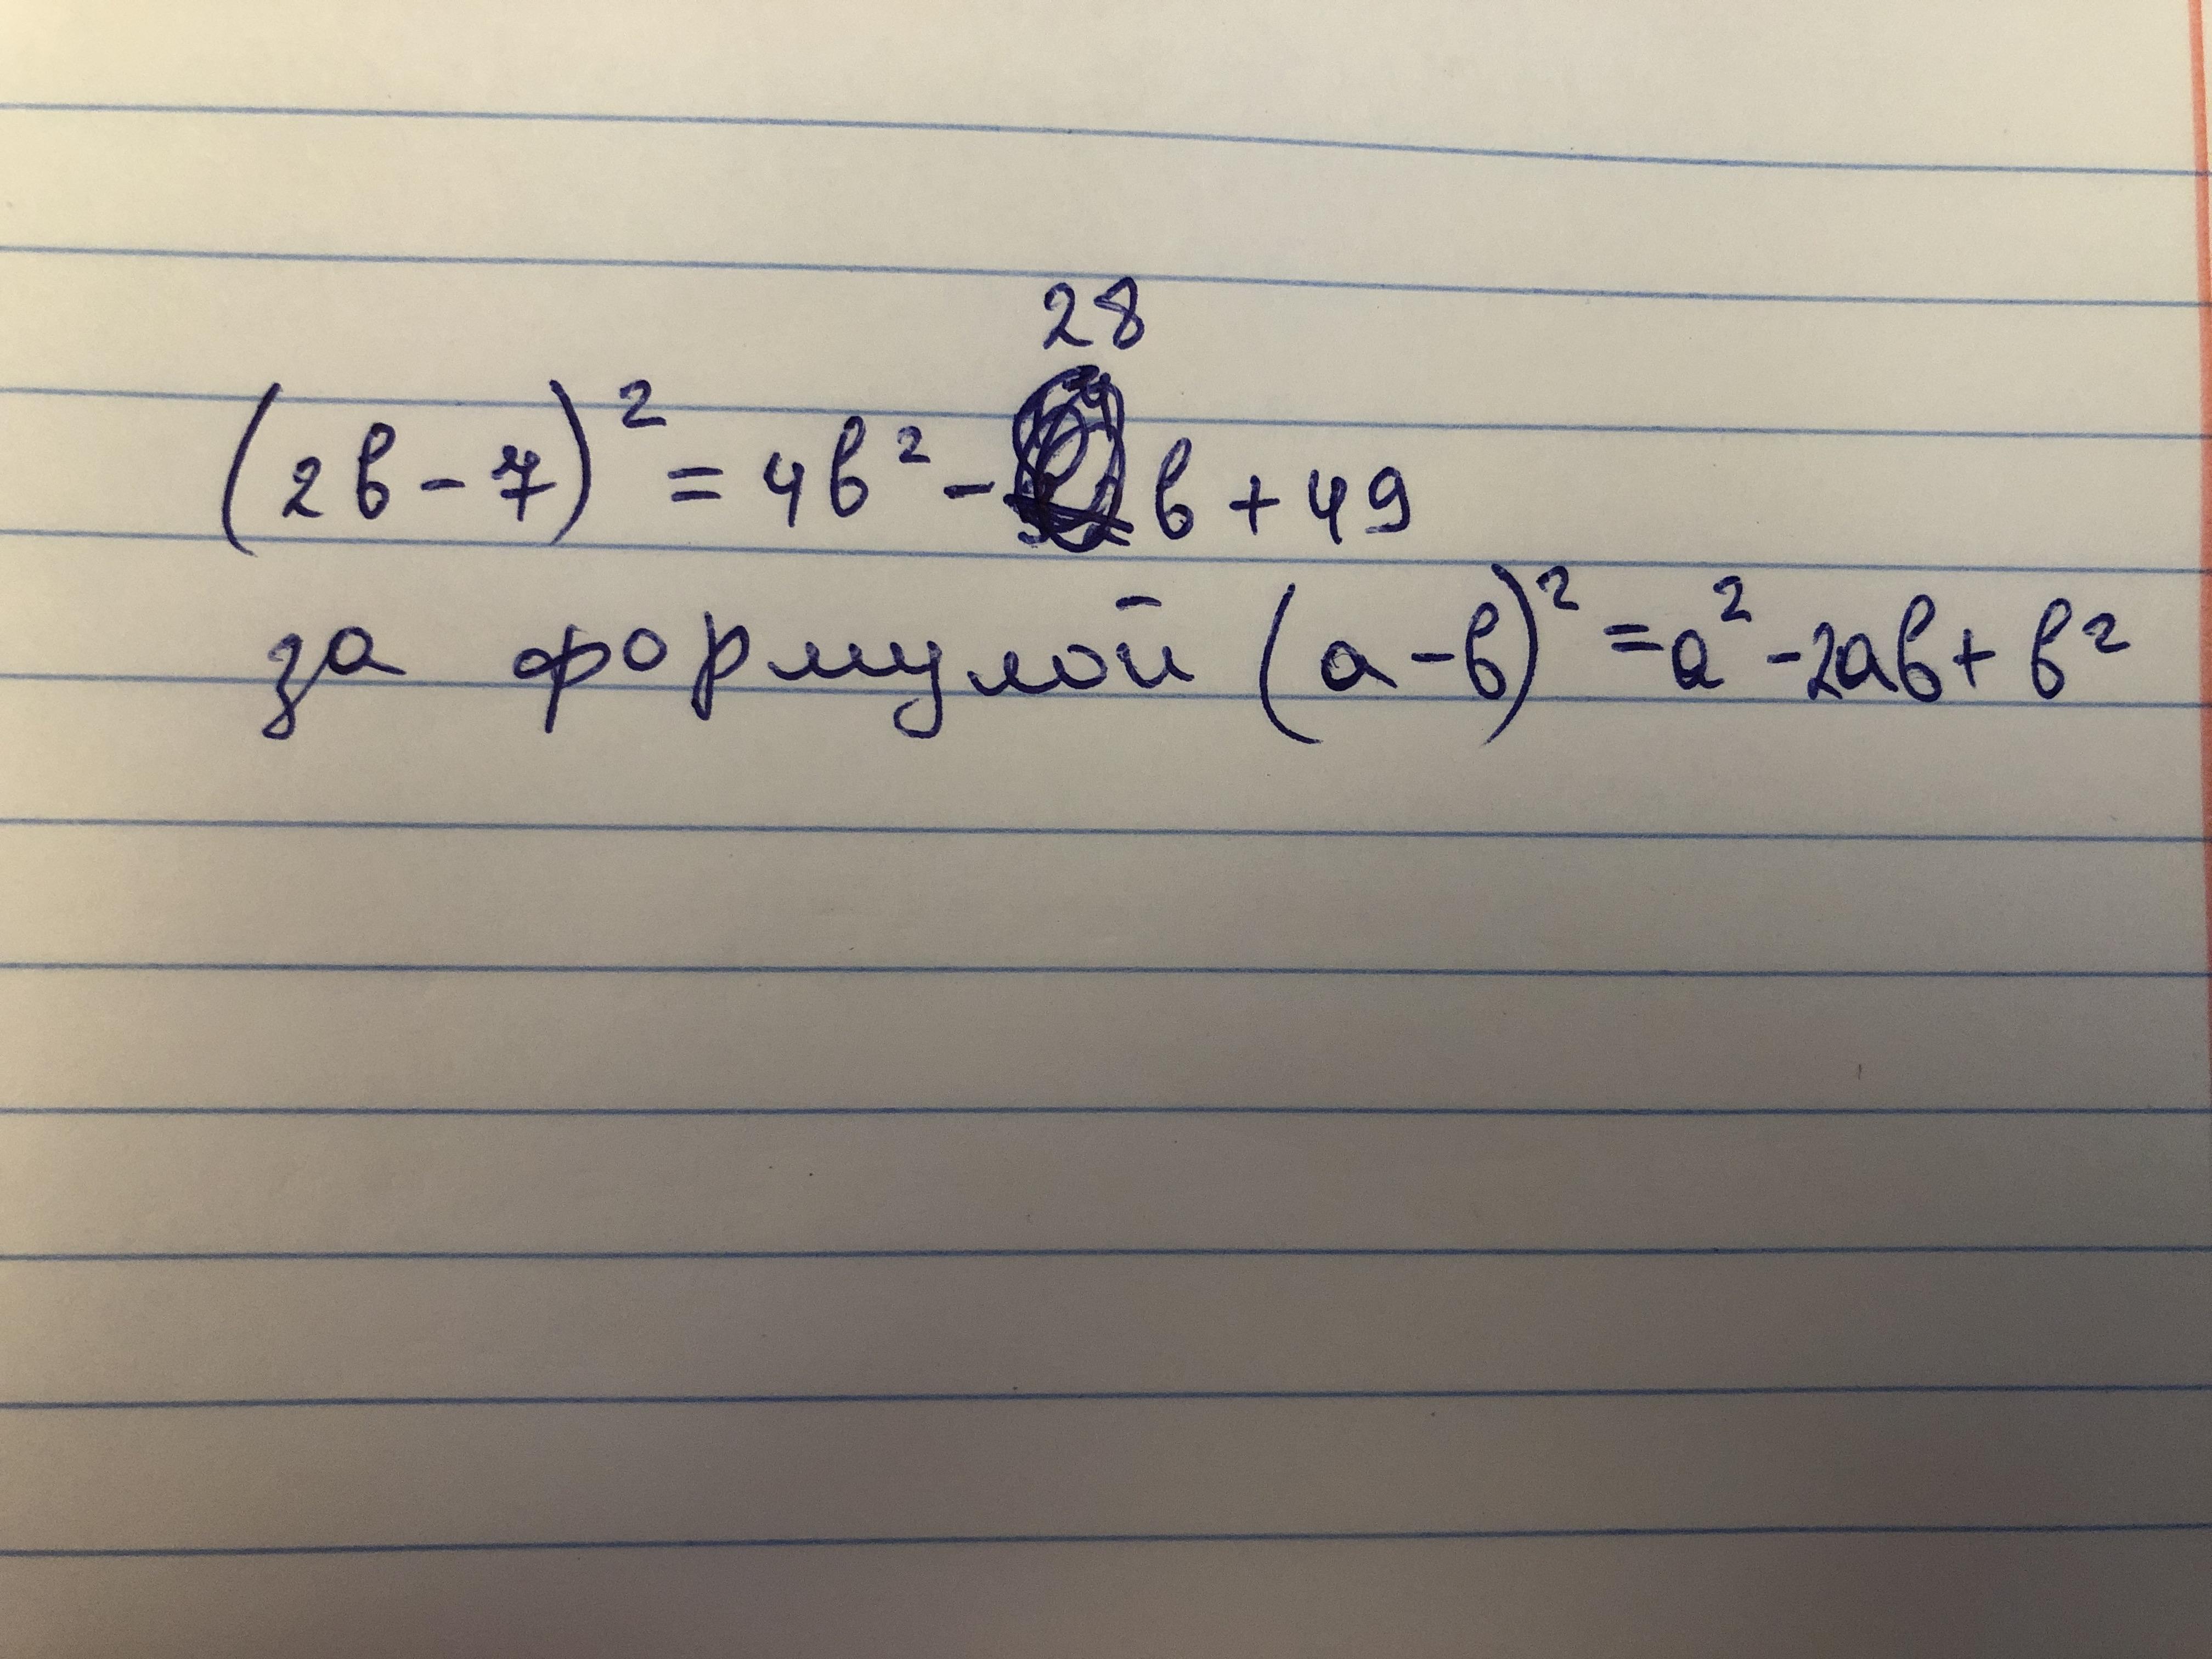 28
(2b - 7)² = 4b² - b + 49
за формулой (a - b)² = a² - 2ab + b²